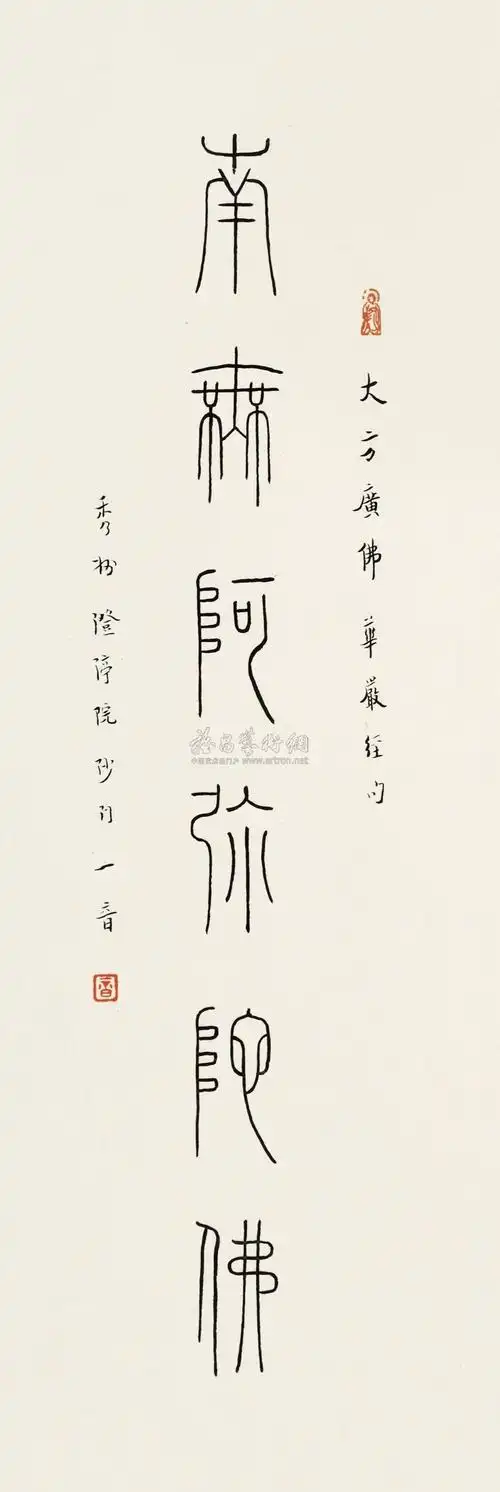 大方廣佛華嚴經句
南無阿弥陀佛
秀州澄渟院沙門一音
一音
雅昌藝術網
www.artron.net